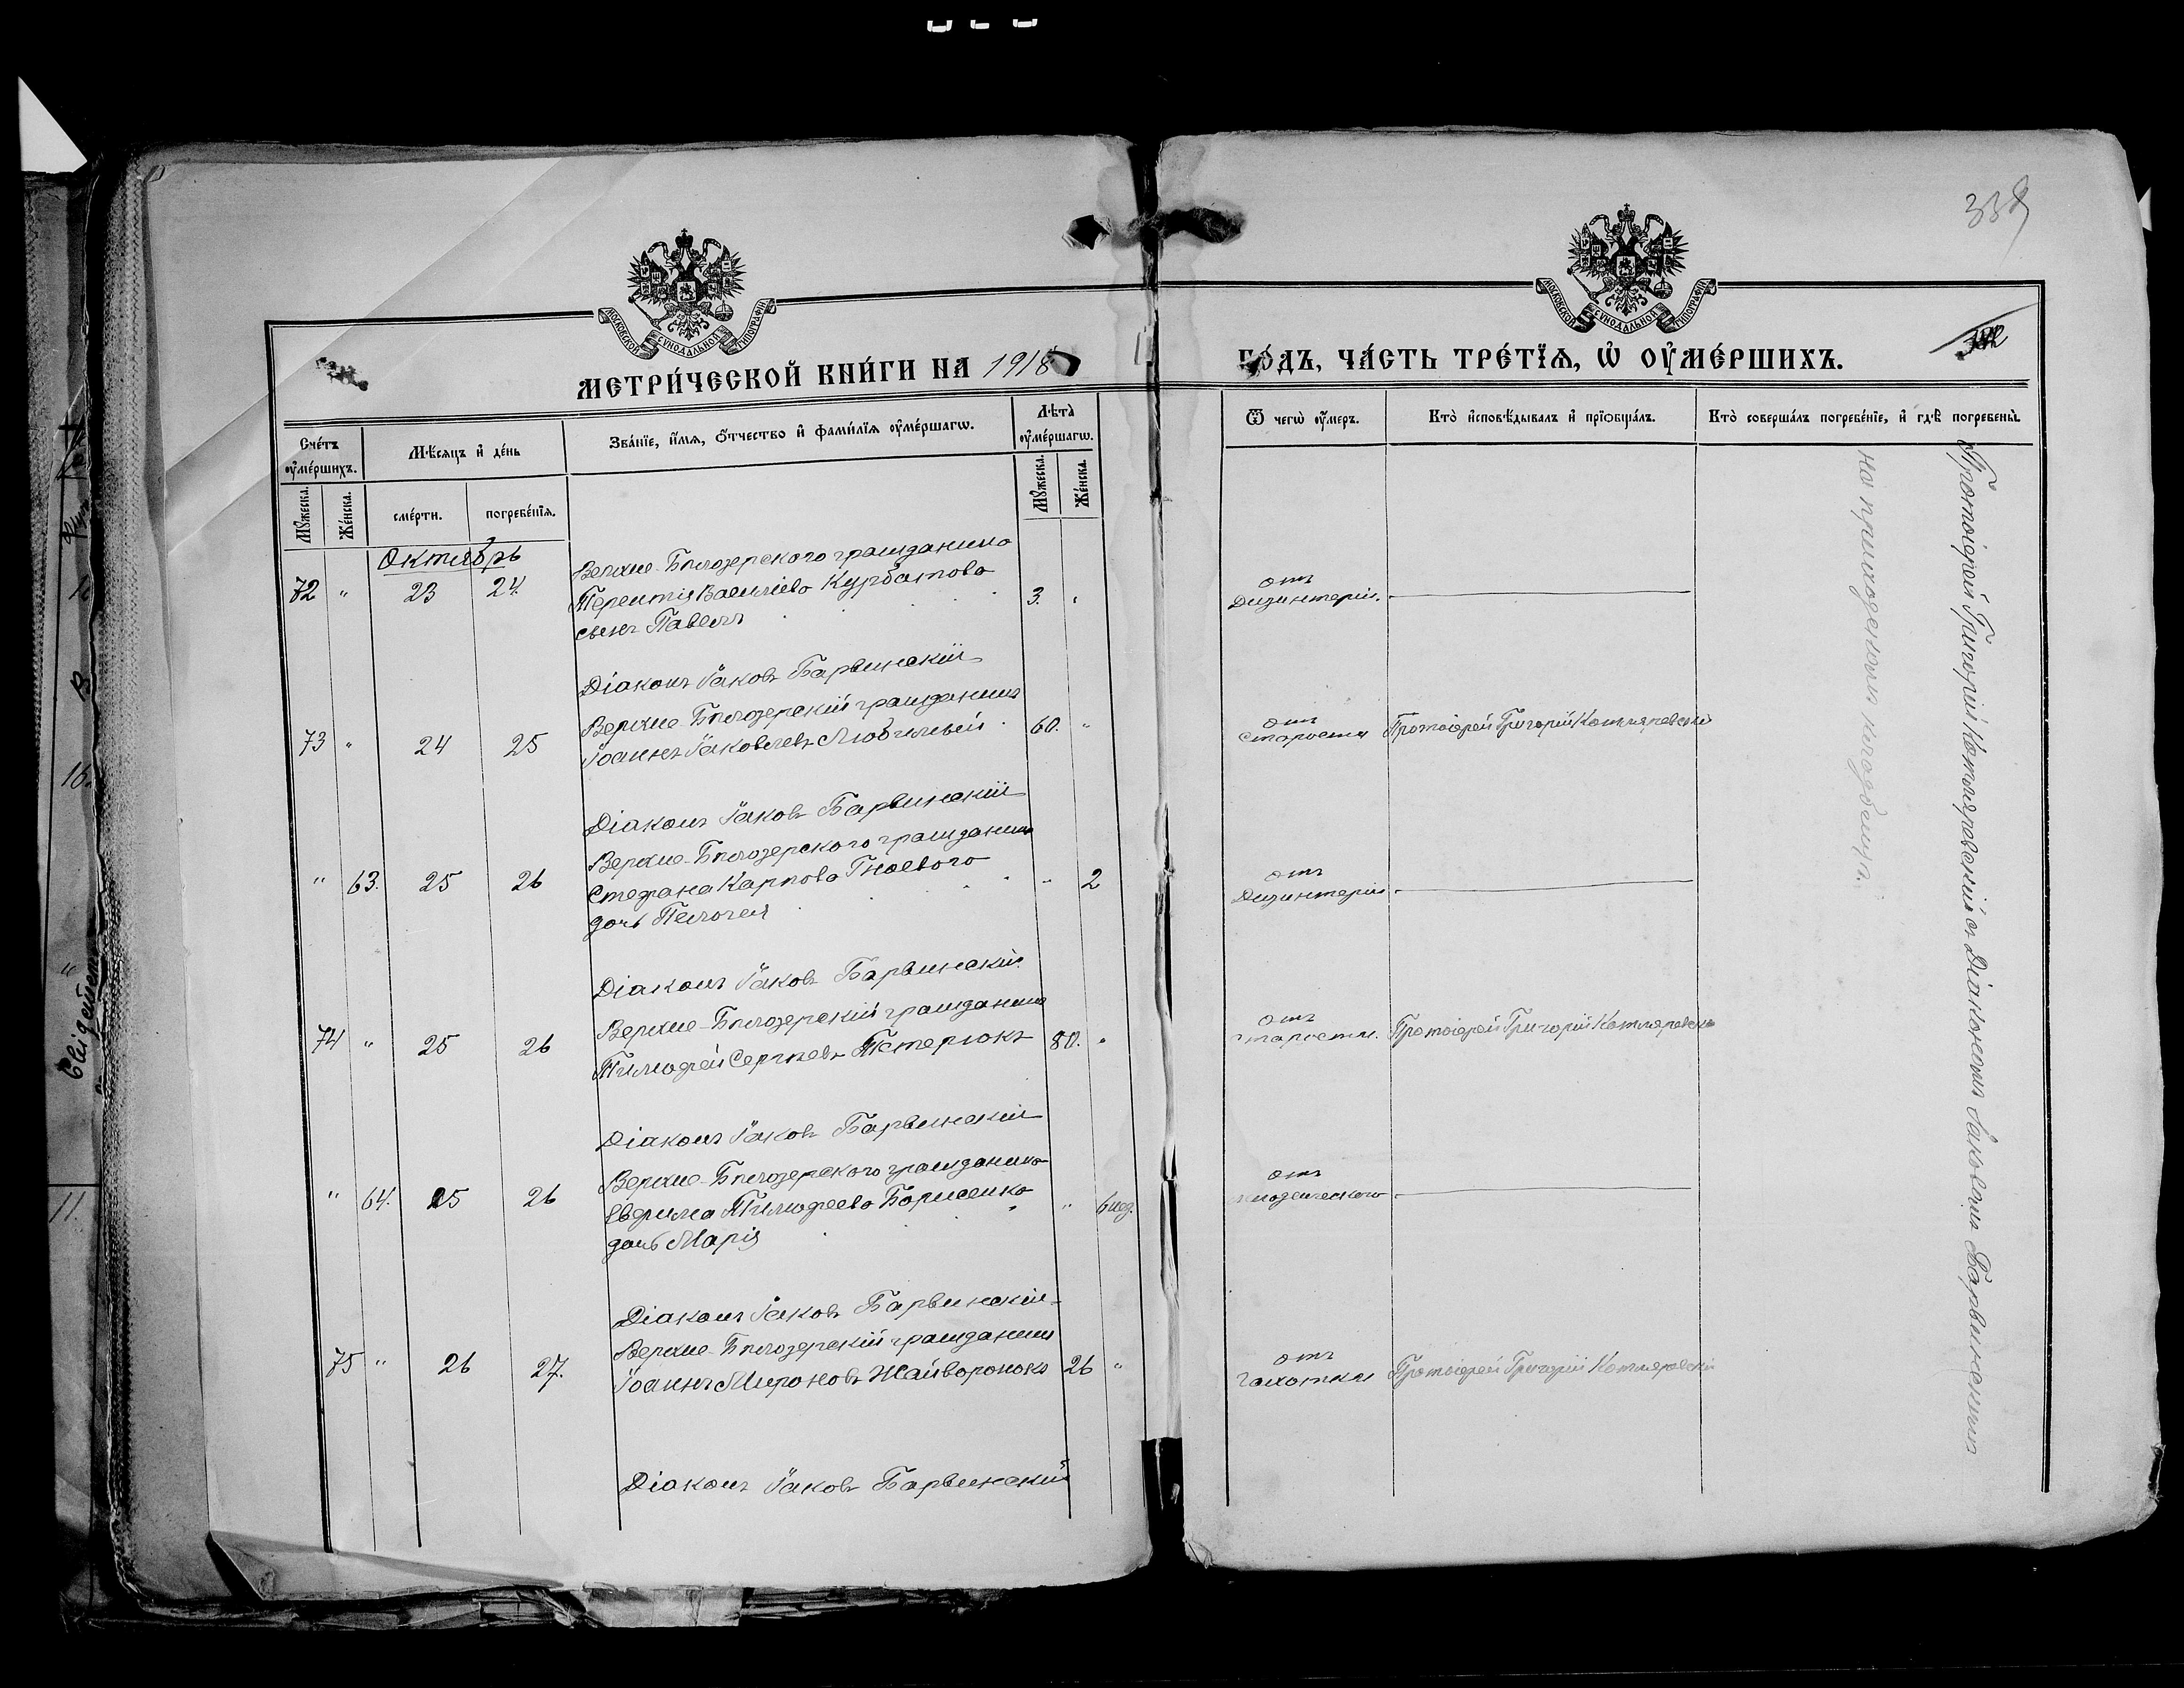 338
МОСКОВСКОЙ СУНОДАЛЬНОЙ ТИПОГРАФІИ
МОСКОВСКОЙ СУНОДАЛЬНОЙ ТИПОГРАФІИ
МЕТРИ́ЧЕСКОЙ КНИ́ГИ НА 1918
ГО́ДЪ, ЧА́СТЬ ТРЕ́ТЇѦ, Ѡ҆ ОУ҆МЕ́РШИХЪ.
Сче́тъ оу҆ме́ршихъ.
Мѣ́сяцъ и҆ де́нь
Зва́нїе, и҆́мя, ѻ҆́тчество и҆ фами́лїя оу҆ме́ршагѡ.
Лѣта̀ оу҆ме́ршагѡ.
Ѿ чегѡ̀ оу҆́меръ.
Кто̀ и҆сповѣ́дывалъ и҆ прїѻбща́лъ.
Кто̀ соверша́лъ погребе́нїе, и҆ гдѣ̀ погребены̀.
Мꙋ́жеска.
Же́нска.
сме́рти.
погребе́нїя.
Мꙋ́жеска.
Же́нска.
Октябрь
72 " 23 24. Верхне-Бѣлозерского гражданина
Терентія Васильева Курбатова 3. "
сынъ Павелъ
отъ
Дизинтеріи.
Діаконъ Іаковъ Барвинскій
73 " 24 25 Верхне-Бѣлозерскій гражданинъ
Іоаннъ Іаковлевъ 60. "
отъ
старости Протоіерей Григорій Котляревскій
Діаконъ Іаковъ Барвинскій
" 63. 25 26 Верхне-Бѣлозерского гражданина
Стефана Карпова Гноевого " 2
дочь Пелагея
отъ
Дизинтеріи
Діаконъ Іаковъ Барвинскій
74 " 25 26 Верхне-Бѣлозерскій гражданинъ
Тимофей Сергѣевъ Нетерюкъ 80. "
отъ
старости. Протоіерей Григорій Котляревскій
Діаконъ Іаковъ Барвинскій
" 64. 25 26 Верхне-Бѣлозерского гражданина
Евфима Тимофеева Борисенко " 6 нед.
дочь Марія
отъ
младенческого
Діаконъ Іаковъ Барвинскій
75 " 26 27. Верхне-Бѣлозерскій гражданинъ
Іоаннъ Мироновъ Жайворонокъ 26 "
отъ
чахотки Протоіерей Григорій Котляревскій
Діаконъ Іаковъ Барвинскій
Протоіерей Григорій Котляревскій съ Діакономъ Іаковомъ Барвинскимъ
на приходскомъ кладбищѣ.